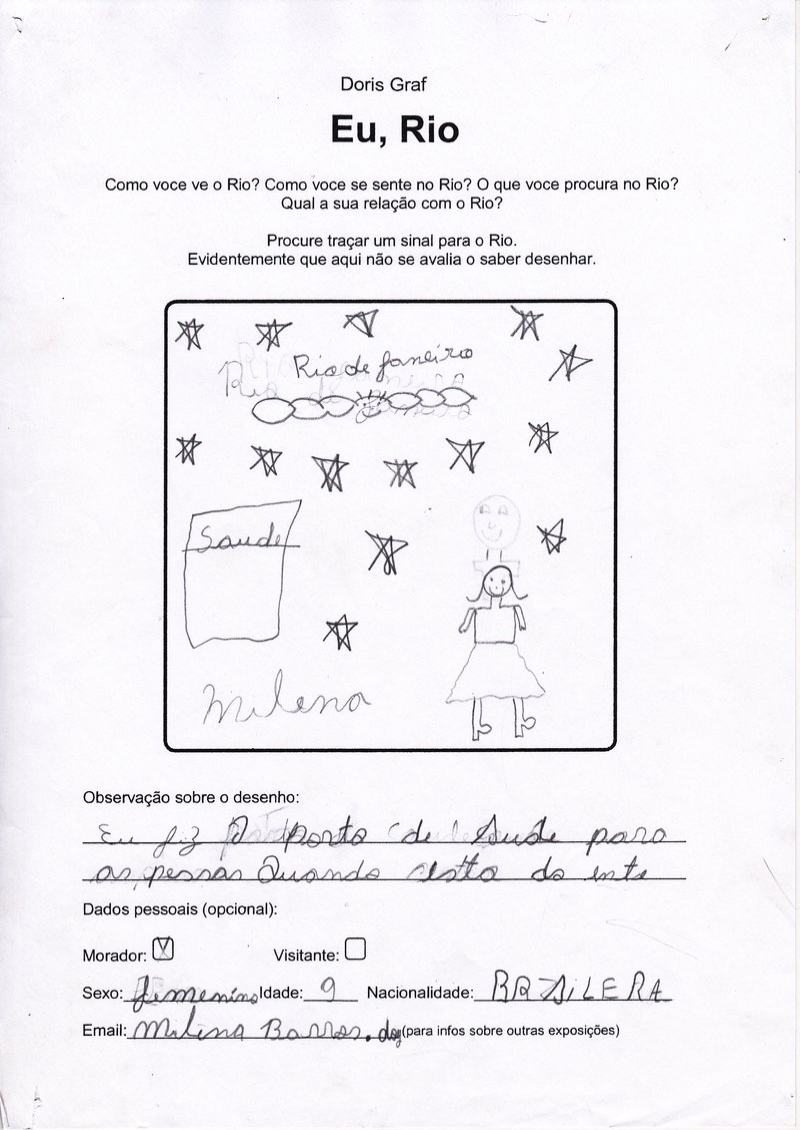 Doris Graf
Eu, Rio
Como voce ve o Rio? Como voce se sente no Rio? O que voce procura no Rio?
Qual a sua relação com o Rio?
Procure traçar um sinal para o Rio.
Evidentemente que aqui não se avalia o saber desenhar.
Rio de janeiro
Saude
Milena
Observação sobre o desenho:
Eu fiz O Sporto de Saude para
as pessoas Quando do ente
Dados pessoais (opcional):
Morador: Visitante:
Sexo: femenino Idade: 9 Nacionalidade: BRASILERA
Email: Milena Barros. (para infos sobre outras exposições)